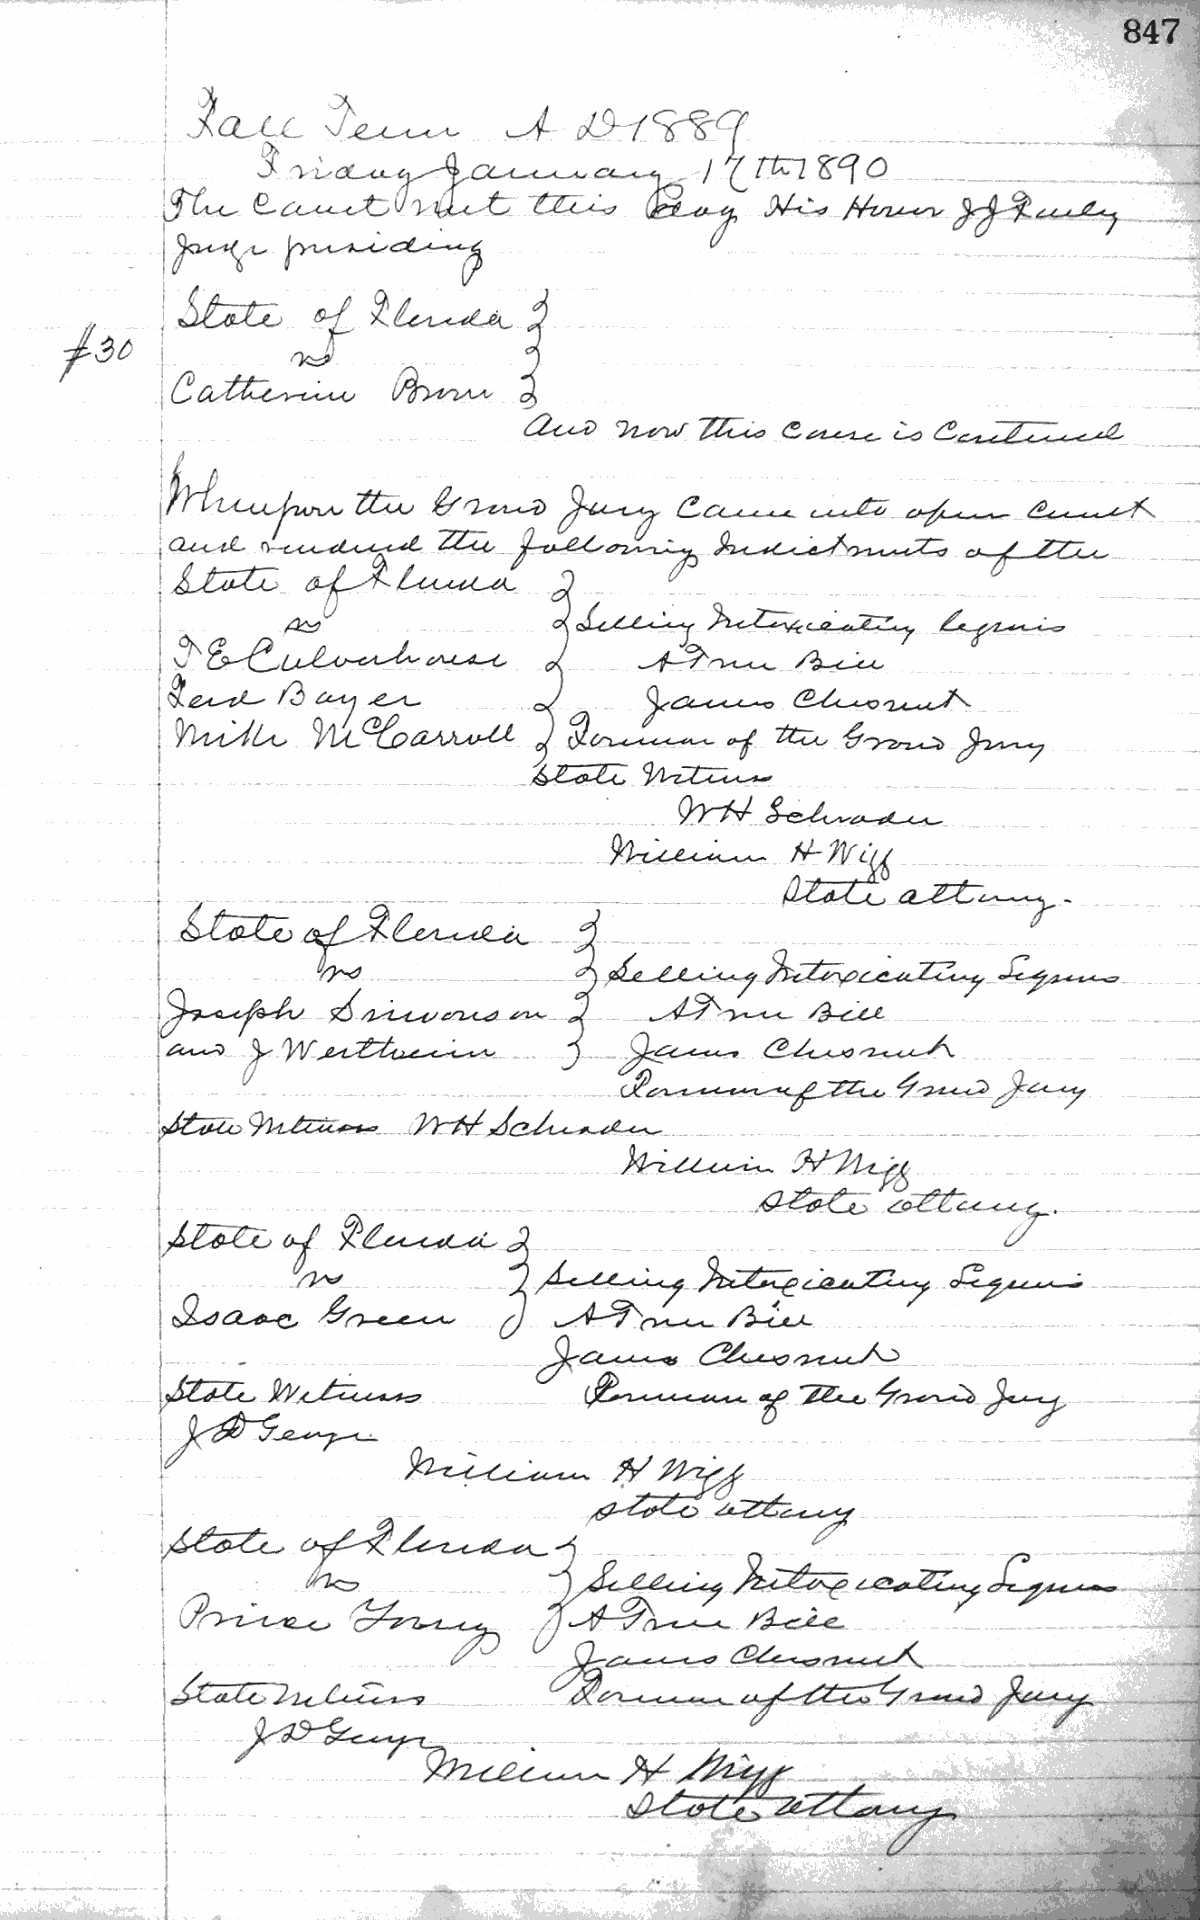 847
Fall Term A D 1889
Friday January 17th 1890
The Court met this day His Honor J J Finley
Juge presiding
State of Florida
vs
#30
Catherine Brown
And now this Cause is Contineud
Whereupon the Grand Jury Came into open Court
and rendered the following Indictments of the
State of Florida
vs
Selling Intoxicating liquors
T E Culverhouse
A True Bill
Ferd Bayer
James Chesnut
Mike McCarroll
Foreman of the Grand Jury
State Witness
W H Schrader
William H Wigg
State attorny.
State of Florida
vs
Selling Intoxicating Liquors
Joseph Simonson
A True Bill
and J Wertheim
James Chesnut
Foreman of the Grand Jury
State Witness W H Schrader
William H Wigg
State attorny.
State of Florida
vs
Selling Intoxicating Liquors
Isaac Green
A True Bill
James Chesnut
State Witness
Foreman of the Grand Jury
J D George
William H Wigg
State attorny
State of Florida
vs
Selling Intoxicating Liquors
Prince Young
A True Bill
James Chesnut
State Witness
Foreman of the Grand Jury
J D George
William H Wigg
State attorny